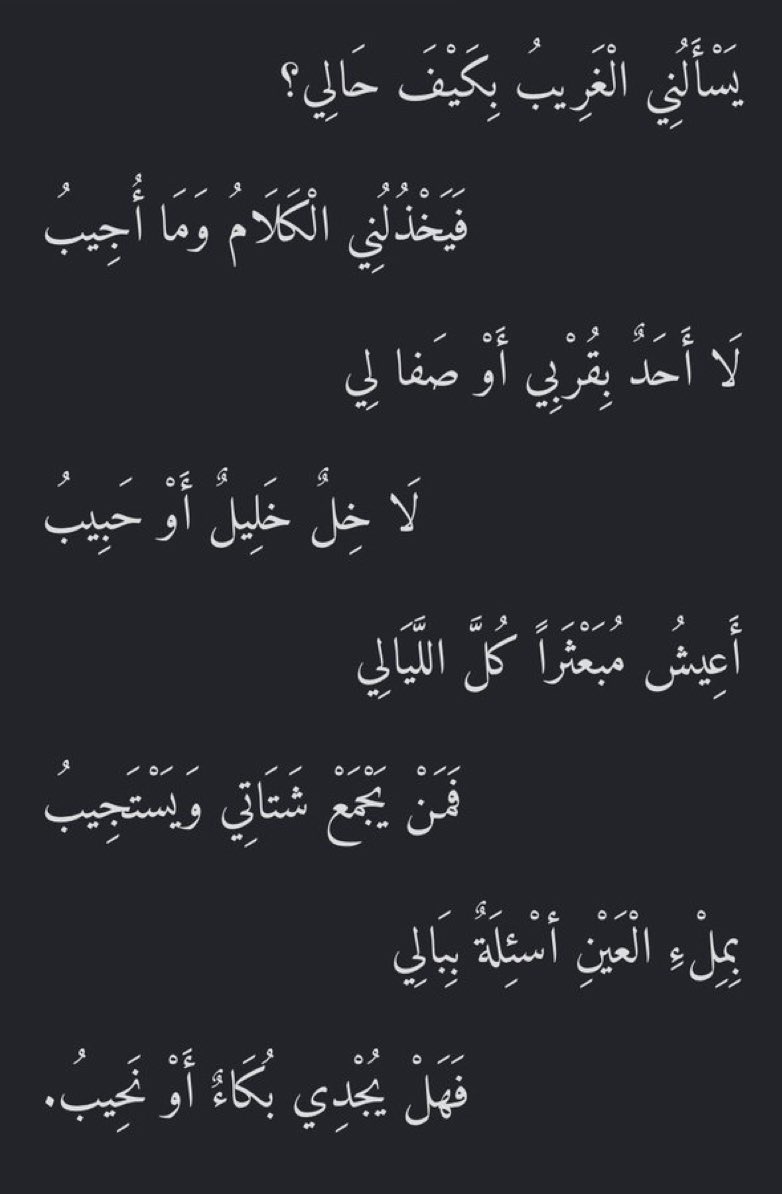 يَسْأَلُنِي الْغَرِيبُ بِكَيْفَ حَالِي؟
فَيَخْذُلُنِي الْكَلَامُ وَمَا أُجِيبُ
لَا أَحَدٌ بِقُرْبِي أَوْ صَفا لِي
لَا خِلٌ خَلِيلٌ أَوْ حَبِيبُ
أَعِيشُ مُبَعْثَراً كُلَّ اللَّيَالِي
فَمَنْ يَجْمَعْ شَتَاتِي وَيَسْتَجِيبُ
بِمِلْءِ الْعَيْنِ أسْئِلَةٌ بِبَالِي
فَهَلْ يُجْدِي بُكَاءٌ أَوْ نَحِيبُ.